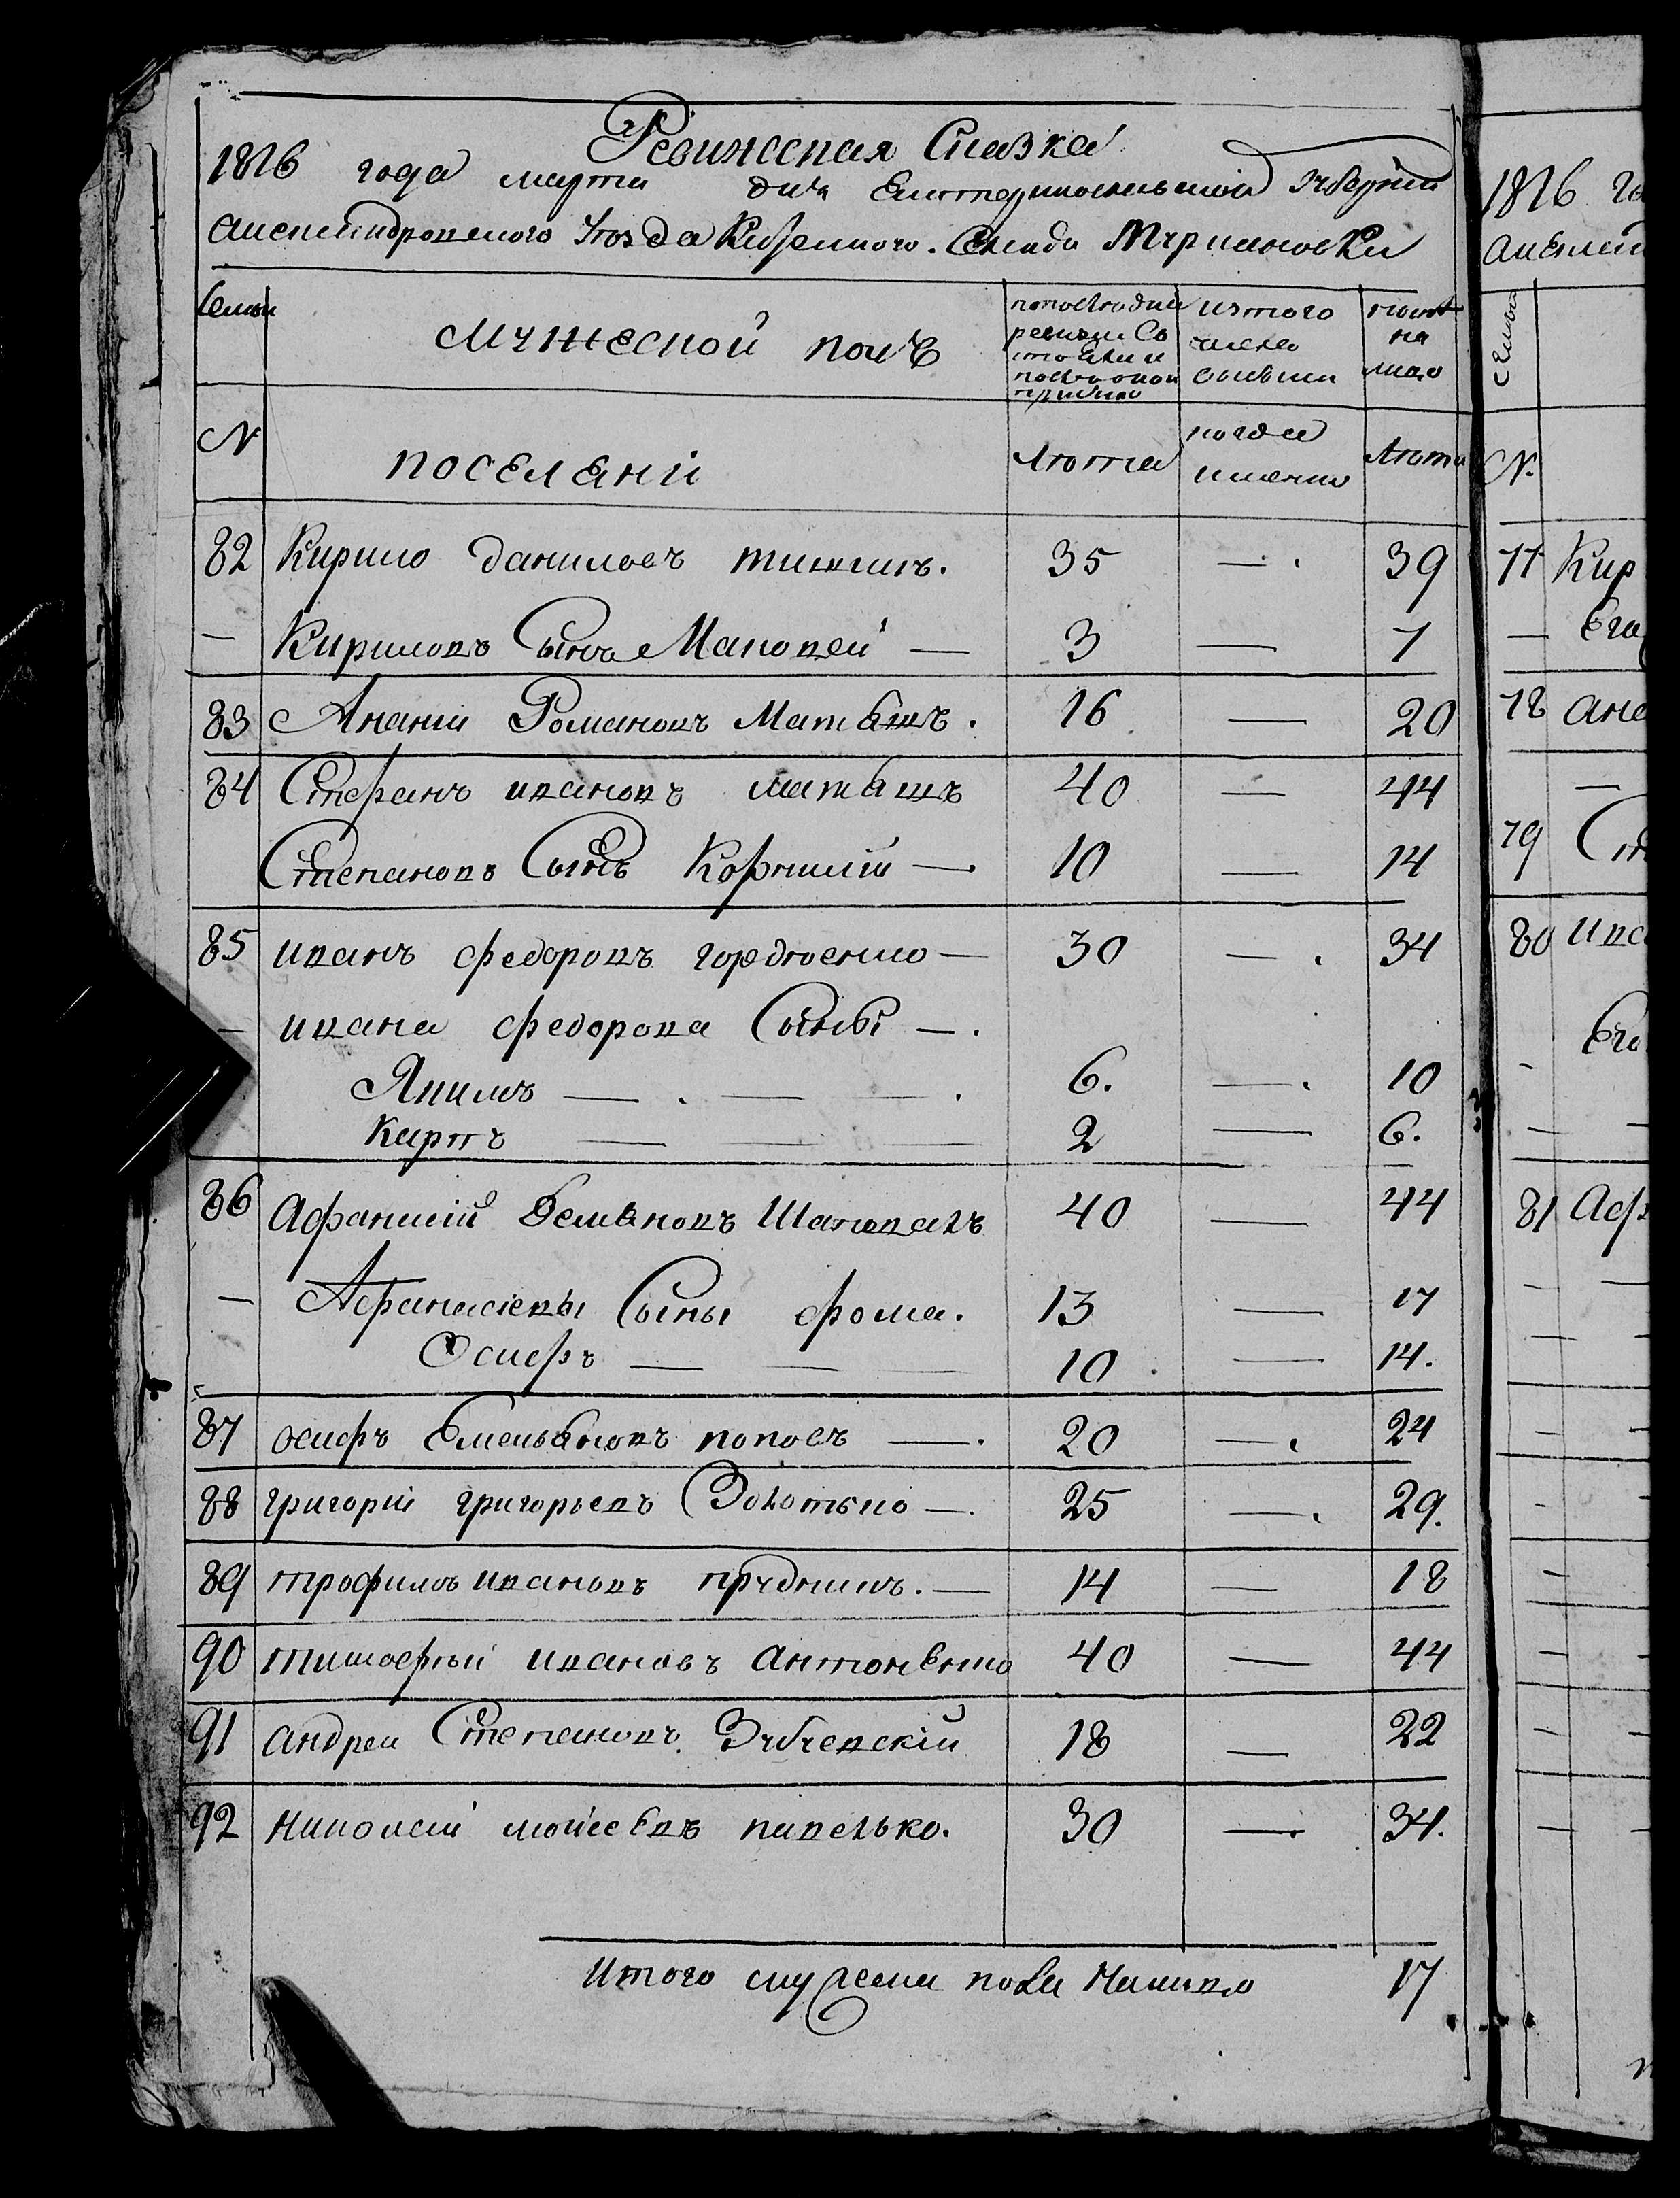 Ревижская Сказка
1816 года марта дня Екатеринославской Губернии
Александровского Уезда Казенного Селида Мариановки
Семьи
мужеской полъ
поселяни
по последней ревизии состояли и после оной прибыло
Лета
изтого числа выбыли
когда именно
ныне на лицо
Лета
N
82 Кирило данилова тишинъ. 35 — 39
— Кириловъ Сынъ Маковей — 3 — 7
83 Ананий Романовъ Маташъ. 16 — 20
84 Стефанъ ивановъ маташъ 40 — 44
Степановъ Сынъ Корнилий — 10 — 14
85 иванъ федоровъ гордиенко — 30 — 34
— ивана федорова Сыны —
Якимъ — — 6. — 10
Карпъ — — — 2 — 6.
86 Афанасий Демяновъ Шаповалъ 40 — 44
— Афанасиевы Сыны фома. 13 — 17
Осифъ — — — 10 — 14.
87 осифъ Емельяновъ поповъ — 20 — 24
88 григорий григорьевъ Золотько — 25 — 29.
89 трофимъ ивановъ прудникъ. — 14 — 18
90 тимофей ивановъ антоненко 40 — 44
91 андрей Степановъ Зубчевскій 18 — 22
92 николай мойсеевъ павелько. 30 — 34.
Итого мужеска пола налицо 17
1816 го
Семьи
N.
77 Кир
— Его
78 ана
—
79 Ст
80 ива
Его
81 Аф